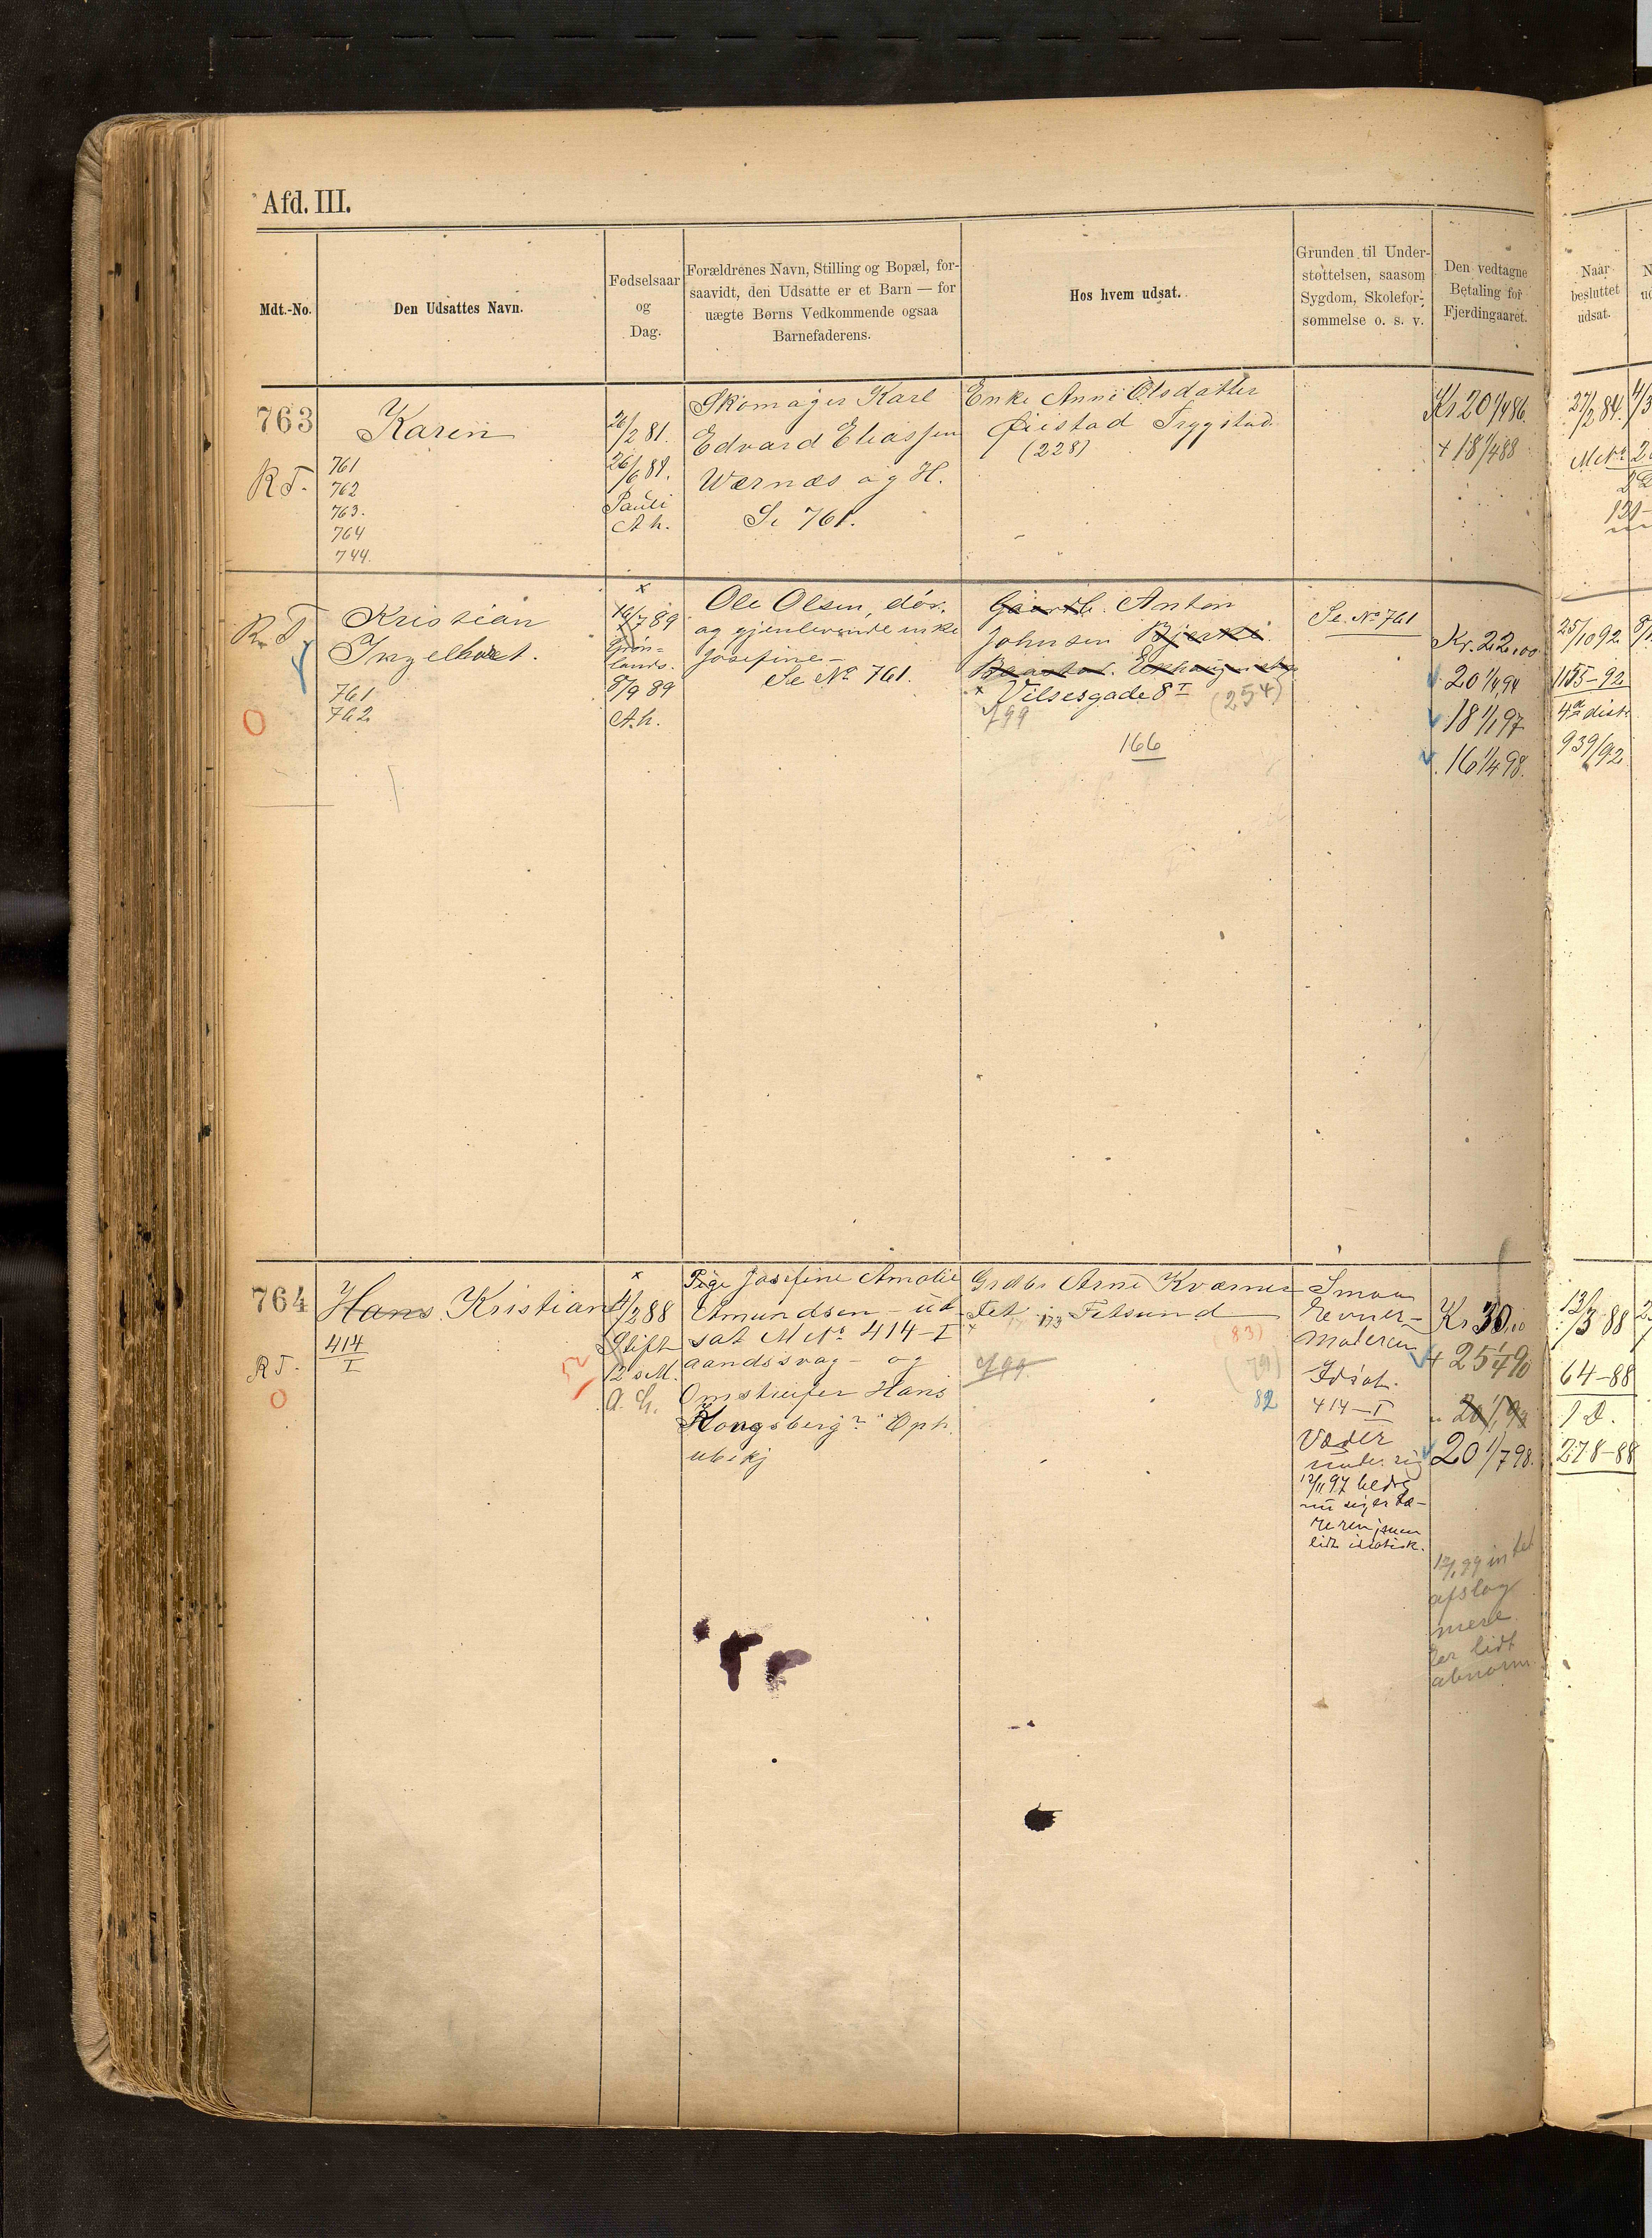 Afd. III.
Mdt.-No.
Den Udsattes Navn.
Fødselsaar
og
Dag.
Forældrenes Navn, Stilling og Bopæl, for-
saavidt, den Udsatte er et Barn — for
uægte Børns Vedkommende ogsaa
Barnefaderens.
Hos hvem udsat.
Grunden til Under-
støttelsen, saasom
Sygdom, Skolefor-
sømmelse o. s. v.
Den vedtagne
Betaling for
Fjerdingaaret.
Naar
besluttet
udsat.
763
R T.
Karen
761
762
763.
764
744.
26/2 81.
26/6 81.
Pauli
A. h.
Skomager Karl
Edvard Eliassen
Wærnæs og H.
Se 761.
Enke Anne Olsdatter
Øiestad Trygstad
(228)
Kr 20 1/4 86.
+ 18 1/4 88
27/2 84.
R. T
Kristian
Ingelbret.
761
762
x
16/7 89
Grøn-
lands.
8/9 89
A. h.
Ole Olsen, død.
og gjenlevende enke
Josefine –
Se No 761.
Gaardb. Anton
Johnsen Bjerke
x Vilsesgade 8 I (254)
199
166
Se. No 761
Kr. 22,00
20 1/4 94
18 1/1 97
16 1/4 98.
25/10 92
1155–92
4de distr
939/92
764
R T.
Hans Kristian
414
I
x
4/2 88
Stift
12 s M.
A. h.
Pige Josefine Amalie
Amundsen – ud
sat M No 414–I
aandssvag – og
Omstreifer Hans
Kongsberg? Oph.
ubekj
Grdbr Arne Kværner
Fet 173 Fetsund
(83)
(79)
82
Smaa
Evner –
Moderen
Idiot.
414–I
Væder
under sig
12/11 97 bedre
nu siger Læ-
reren, men
lidt idiotisk.
Kr 30,00
+ 25 1/4 90
20 1/7 98.
12/1 99 intet
afslag
mere
er lidt
abnorm.
13/3 88
64–88
1 D.
278–88